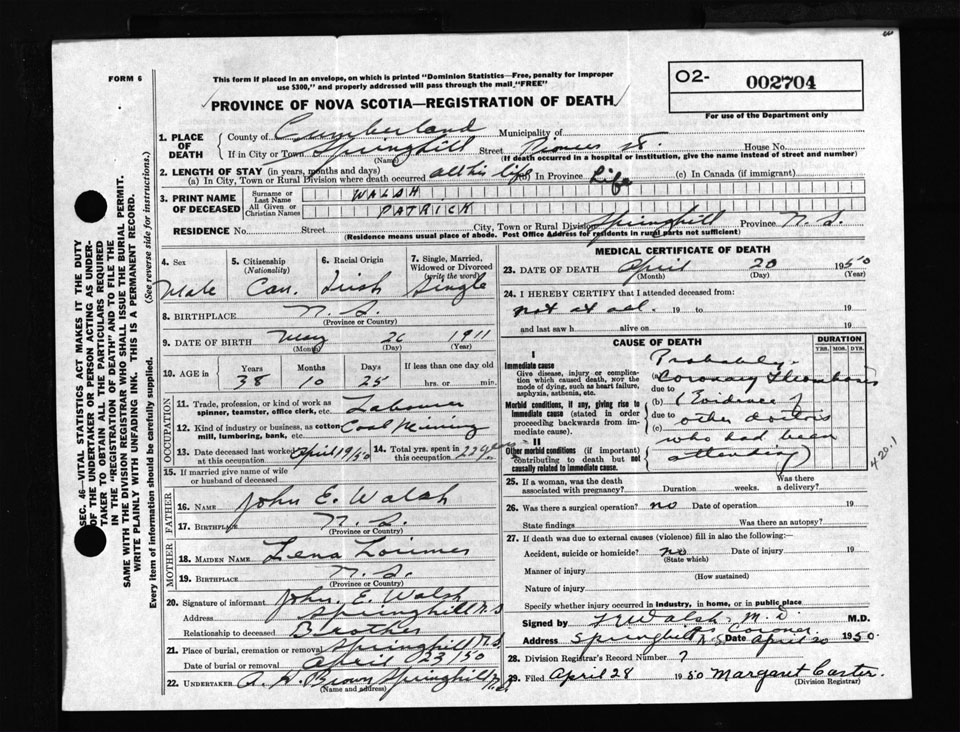 FORM 6
This form if placed in an envelope, on which is printed "Dominion Statistics—Free, penalty for improper
use $300," and properly addressed will pass through the mail "FREE"
O2- 002704
For use of the Department only
PROVINCE OF NOVA SCOTIA—REGISTRATION OF DEATH
1. PLACE OF DEATH
County of Cumberland Municipality of
If in City or Town Springhill Street Pioneer St. House No.
(Name) (If death occurred in a hospital or institution, give the name instead of street and number)
2. LENGTH OF STAY (in years, months and days)
(a) In City, Town or Rural Division where death occurred all his life (b) In Province Life (c) In Canada (if immigrant)
3. PRINT NAME OF DECEASED
Surname or Last Name WALSH
All Given or Christian Names PATRICK
RESIDENCE No. Street City, Town or Rural Division Springhill Province N. S.
(Residence means usual place of abode. Post Office Address for residents in rural parts not sufficient)
4. Sex Male
5. Citizenship (Nationality) Can.
6. Racial Origin Irish
7. Single, Married, Widowed or Divorced (write the word) Single
8. BIRTHPLACE N. S.
(Province or Country)
9. DATE OF BIRTH May 26 1911
(Month) (Day) (Year)
10. AGE in Years 38 Months 10 Days 25 If less than one day old hrs. or min.
OCCUPATION
11. Trade, profession or kind of work as spinner, teamster, office clerk, etc. Labourer
12. Kind of industry or business, as cotton mill, lumbering, bank, etc. Coal Mining
13. Date deceased last worked at this occupation April 19/50
14. Total yrs. spent in this occupation 22 years
15. If married give name of wife or husband of deceased
FATHER
16. NAME John E. Walsh
17. BIRTHPLACE N. S.
(Province or Country)
MOTHER
18. MAIDEN NAME Lena Lorimer
19. BIRTHPLACE N. S.
(Province or Country)
20. Signature of informant John E. Walsh
Address Springhill N.S
Relationship to deceased Brother
21. Place of burial, cremation or removal Springhill N.S
Date of burial or removal April 23/50
22. UNDERTAKER A. H. Brown Springhill N.S.
(Name and address)
MEDICAL CERTIFICATE OF DEATH
23. DATE OF DEATH April 20 1950
(Month) (Day) (Year)
24. I HEREBY CERTIFY that I attended deceased from:
not at all. 19 to 19
and last saw h alive on 19
CAUSE OF DEATH
DURATION
YRS. MOS. DYS.
I
Immediate cause
Give disease, injury or complication which caused death, NOT the mode of dying, such as heart failure, asphyxia, asthenia, etc.
Morbid conditions, if any, giving rise to immediate cause (stated in order proceeding backwards from immediate cause).
II
Other morbid conditions (if important) contributing to death but not causally related to immediate cause.
Probably-
(a) Coronary Thrombosis
due to
(b) (Evidence of
due to other doctors
(c)
who had been
attending)
420.1
25. If a woman, was the death associated with pregnancy? Duration weeks. Was there a delivery?
26. Was there a surgical operation? no Date of operation 19
State findings Was there an autopsy?
27. If death was due to external causes (violence) fill in also the following:
Accident, suicide or homicide? no Date of injury 19
(State which)
Manner of injury
(How sustained)
Nature of injury
Specify whether injury occurred in industry, in home, or in public place
Signed by Walsh, M.D. M.D.
Coroner
Address Springhill N.S. Date April 20 1950.
28. Division Registrar's Record Number 7
29. Filed April 28 1950 Margaret Carter.
(Division Registrar)
SEC. 46—VITAL STATISTICS ACT MAKES IT THE DUTY
OF THE UNDERTAKER OR PERSON ACTING AS UNDER-
TAKER TO OBTAIN ALL THE PARTICULARS REQUIRED
IN THE "REGISTRATION OF DEATH" AND TO FILE THE
SAME WITH THE DIVISION REGISTRAR WHO SHALL ISSUE THE BURIAL PERMIT.
WRITE PLAINLY WITH UNFADING INK. THIS IS A PERMANENT RECORD.
Every item of information should be carefully supplied. (See reverse side for instructions.)